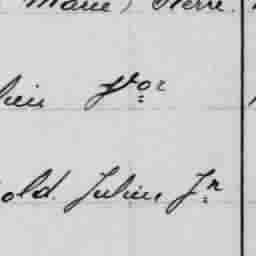 Marie) Pierre
lien Vor
old. Julien Jn